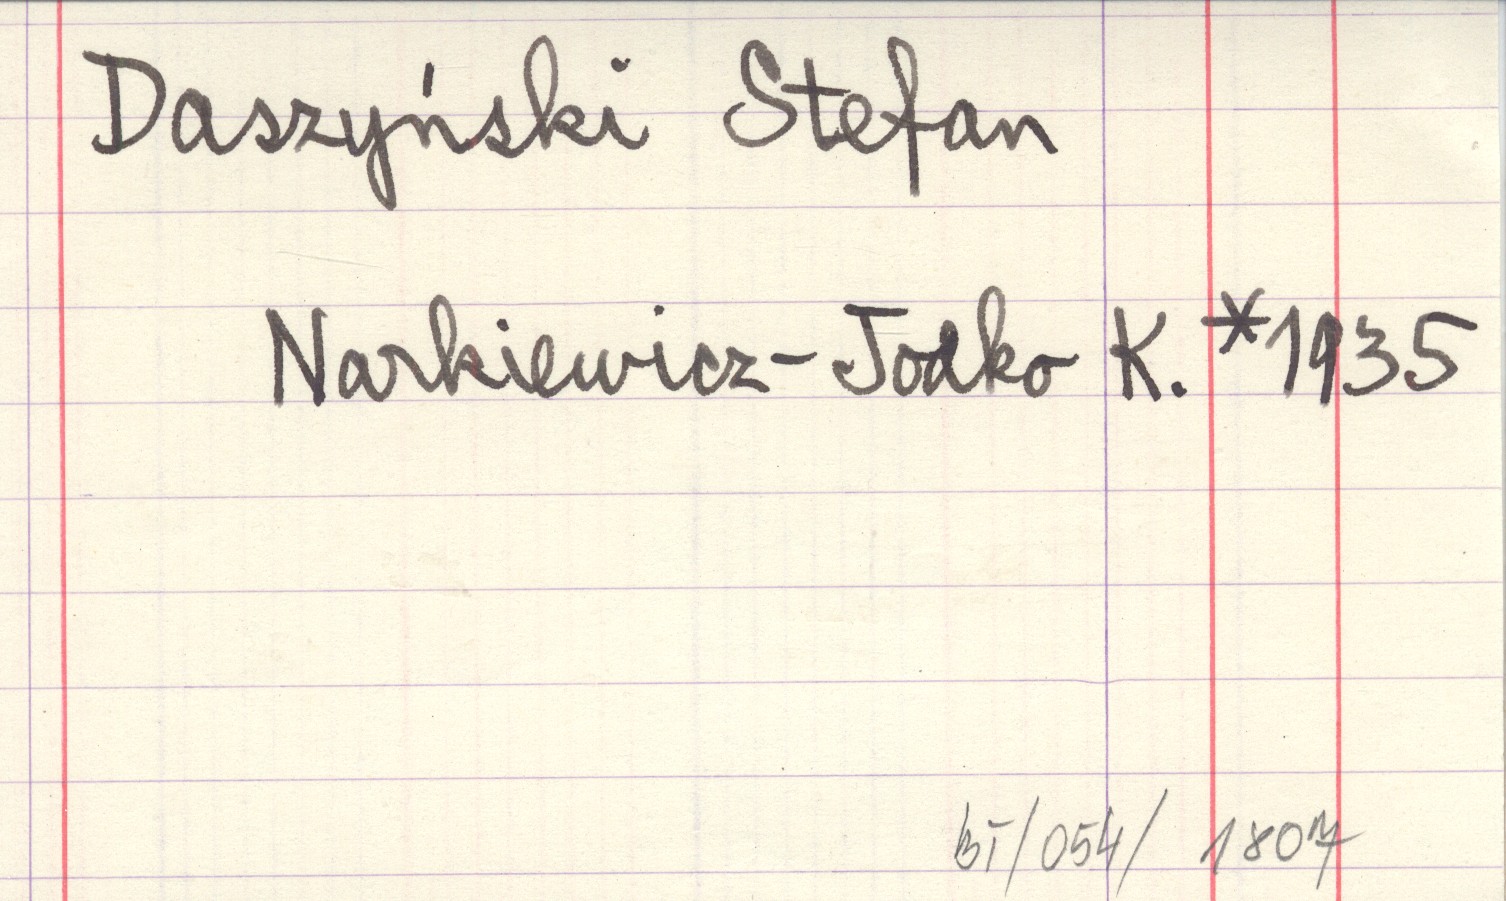 Daszyński Stefan
Narkiewicz-Jodko K. *1935
BI/054/ 1807